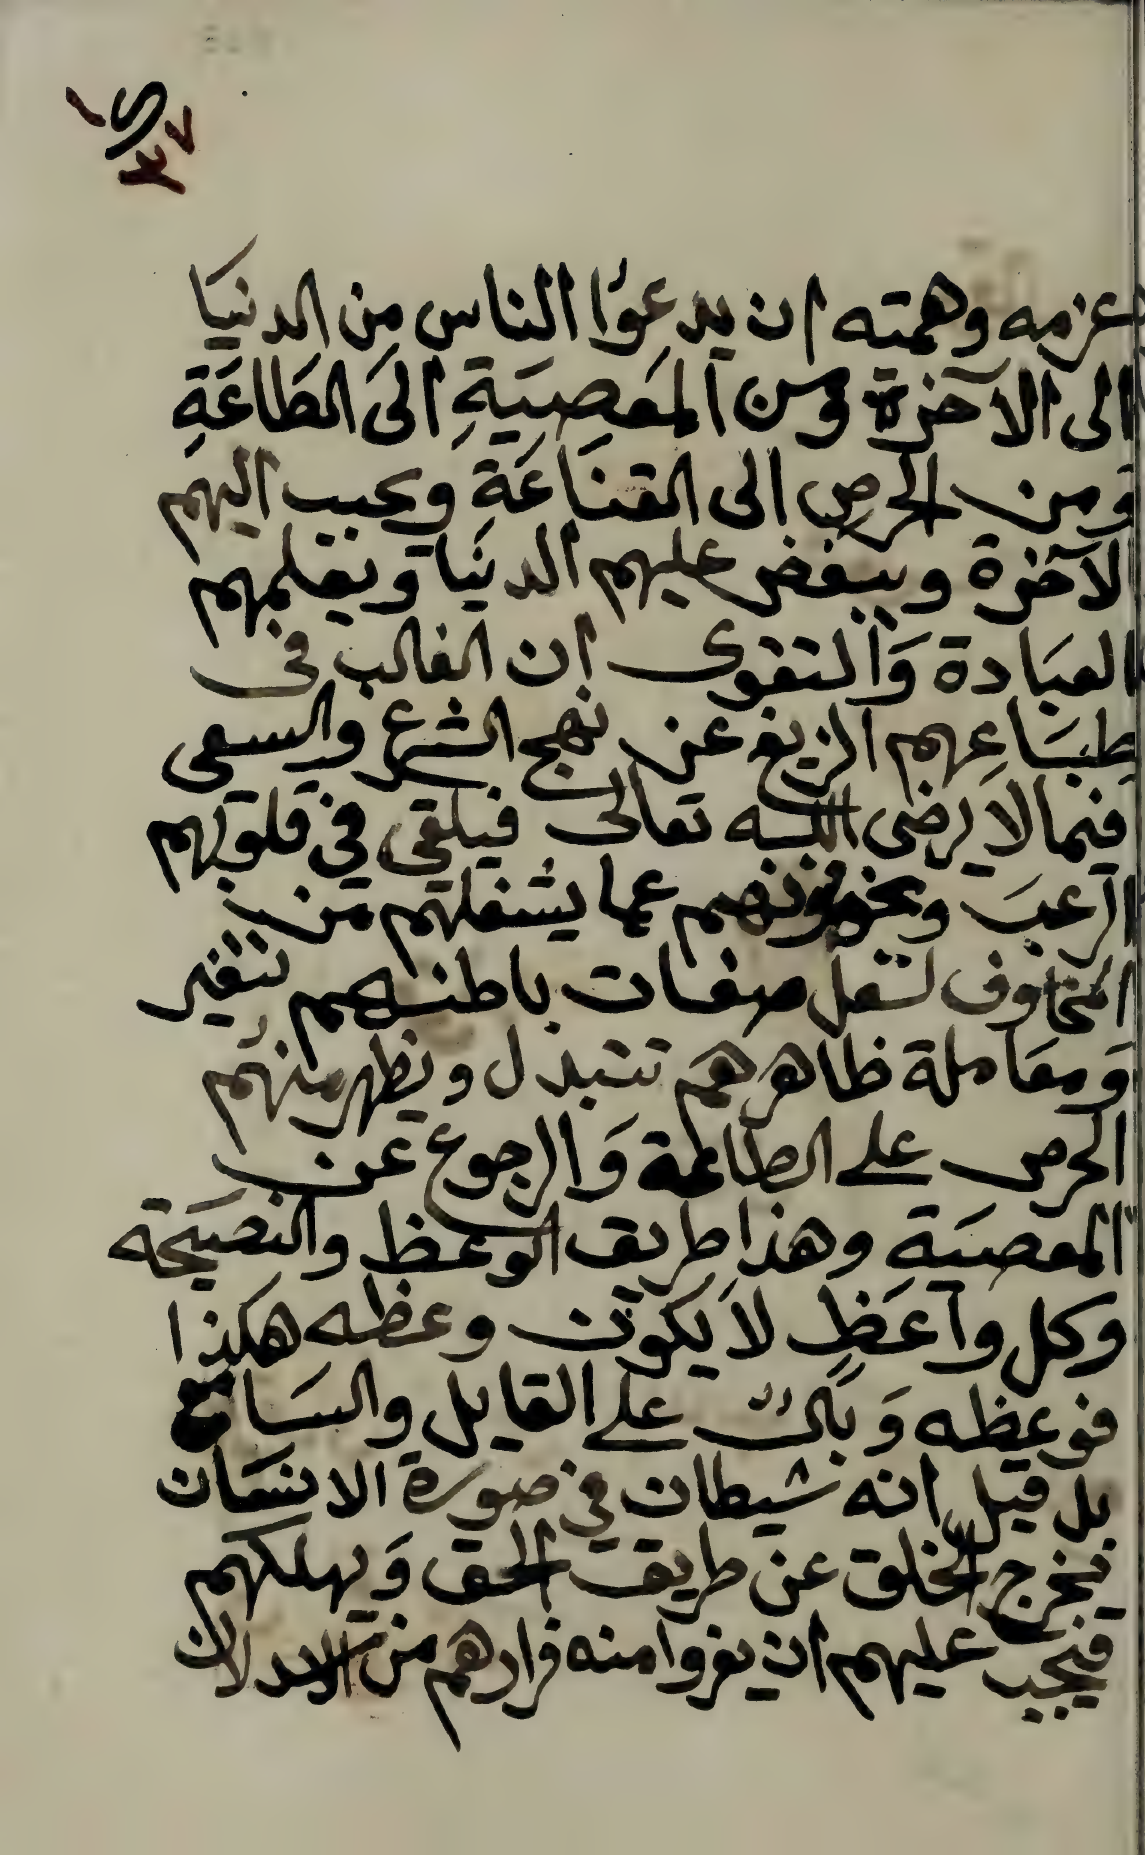 عزمه وهمته ان يدعوا الناس مِن الدنيَا
الى الآخرة ومن المَعصِيَةِ الىَ الطَاعَةِ
ومن الحرص الى القنَاعَة ويحبب اليهم
الآخرة ويبغض عليهم الدنيَا ويعلمهم
العبَادة وَالتقوى ان الغالب فى
طبَاعِهم الزيغ عن نهج الشرع والسعى
فيما لا يرضى الله تعالى فيلقى في قلوبهم
الرعبَ ويخوفونهم عما يشغلهم من
المخاوف لتعل صفات باطنهم تتغير
وَمعَاملة ظاهرهم تتبدل ونظهر منهم
الحرص على الطاعة وَالرجوع عن
المعصيَة وهذا طريق الوعظ والنصيَحة
وكل وآعَظٍ لاَ يكون وعظه هكذا
فوعظه وَبَال على القايل والسَامع
بل قيل انه شيطان في صورة الانسَان
يخرج الخلق عن طريق الحق وَيهلكهم
فيجب عليهم ان يفروا منه فرارهم من